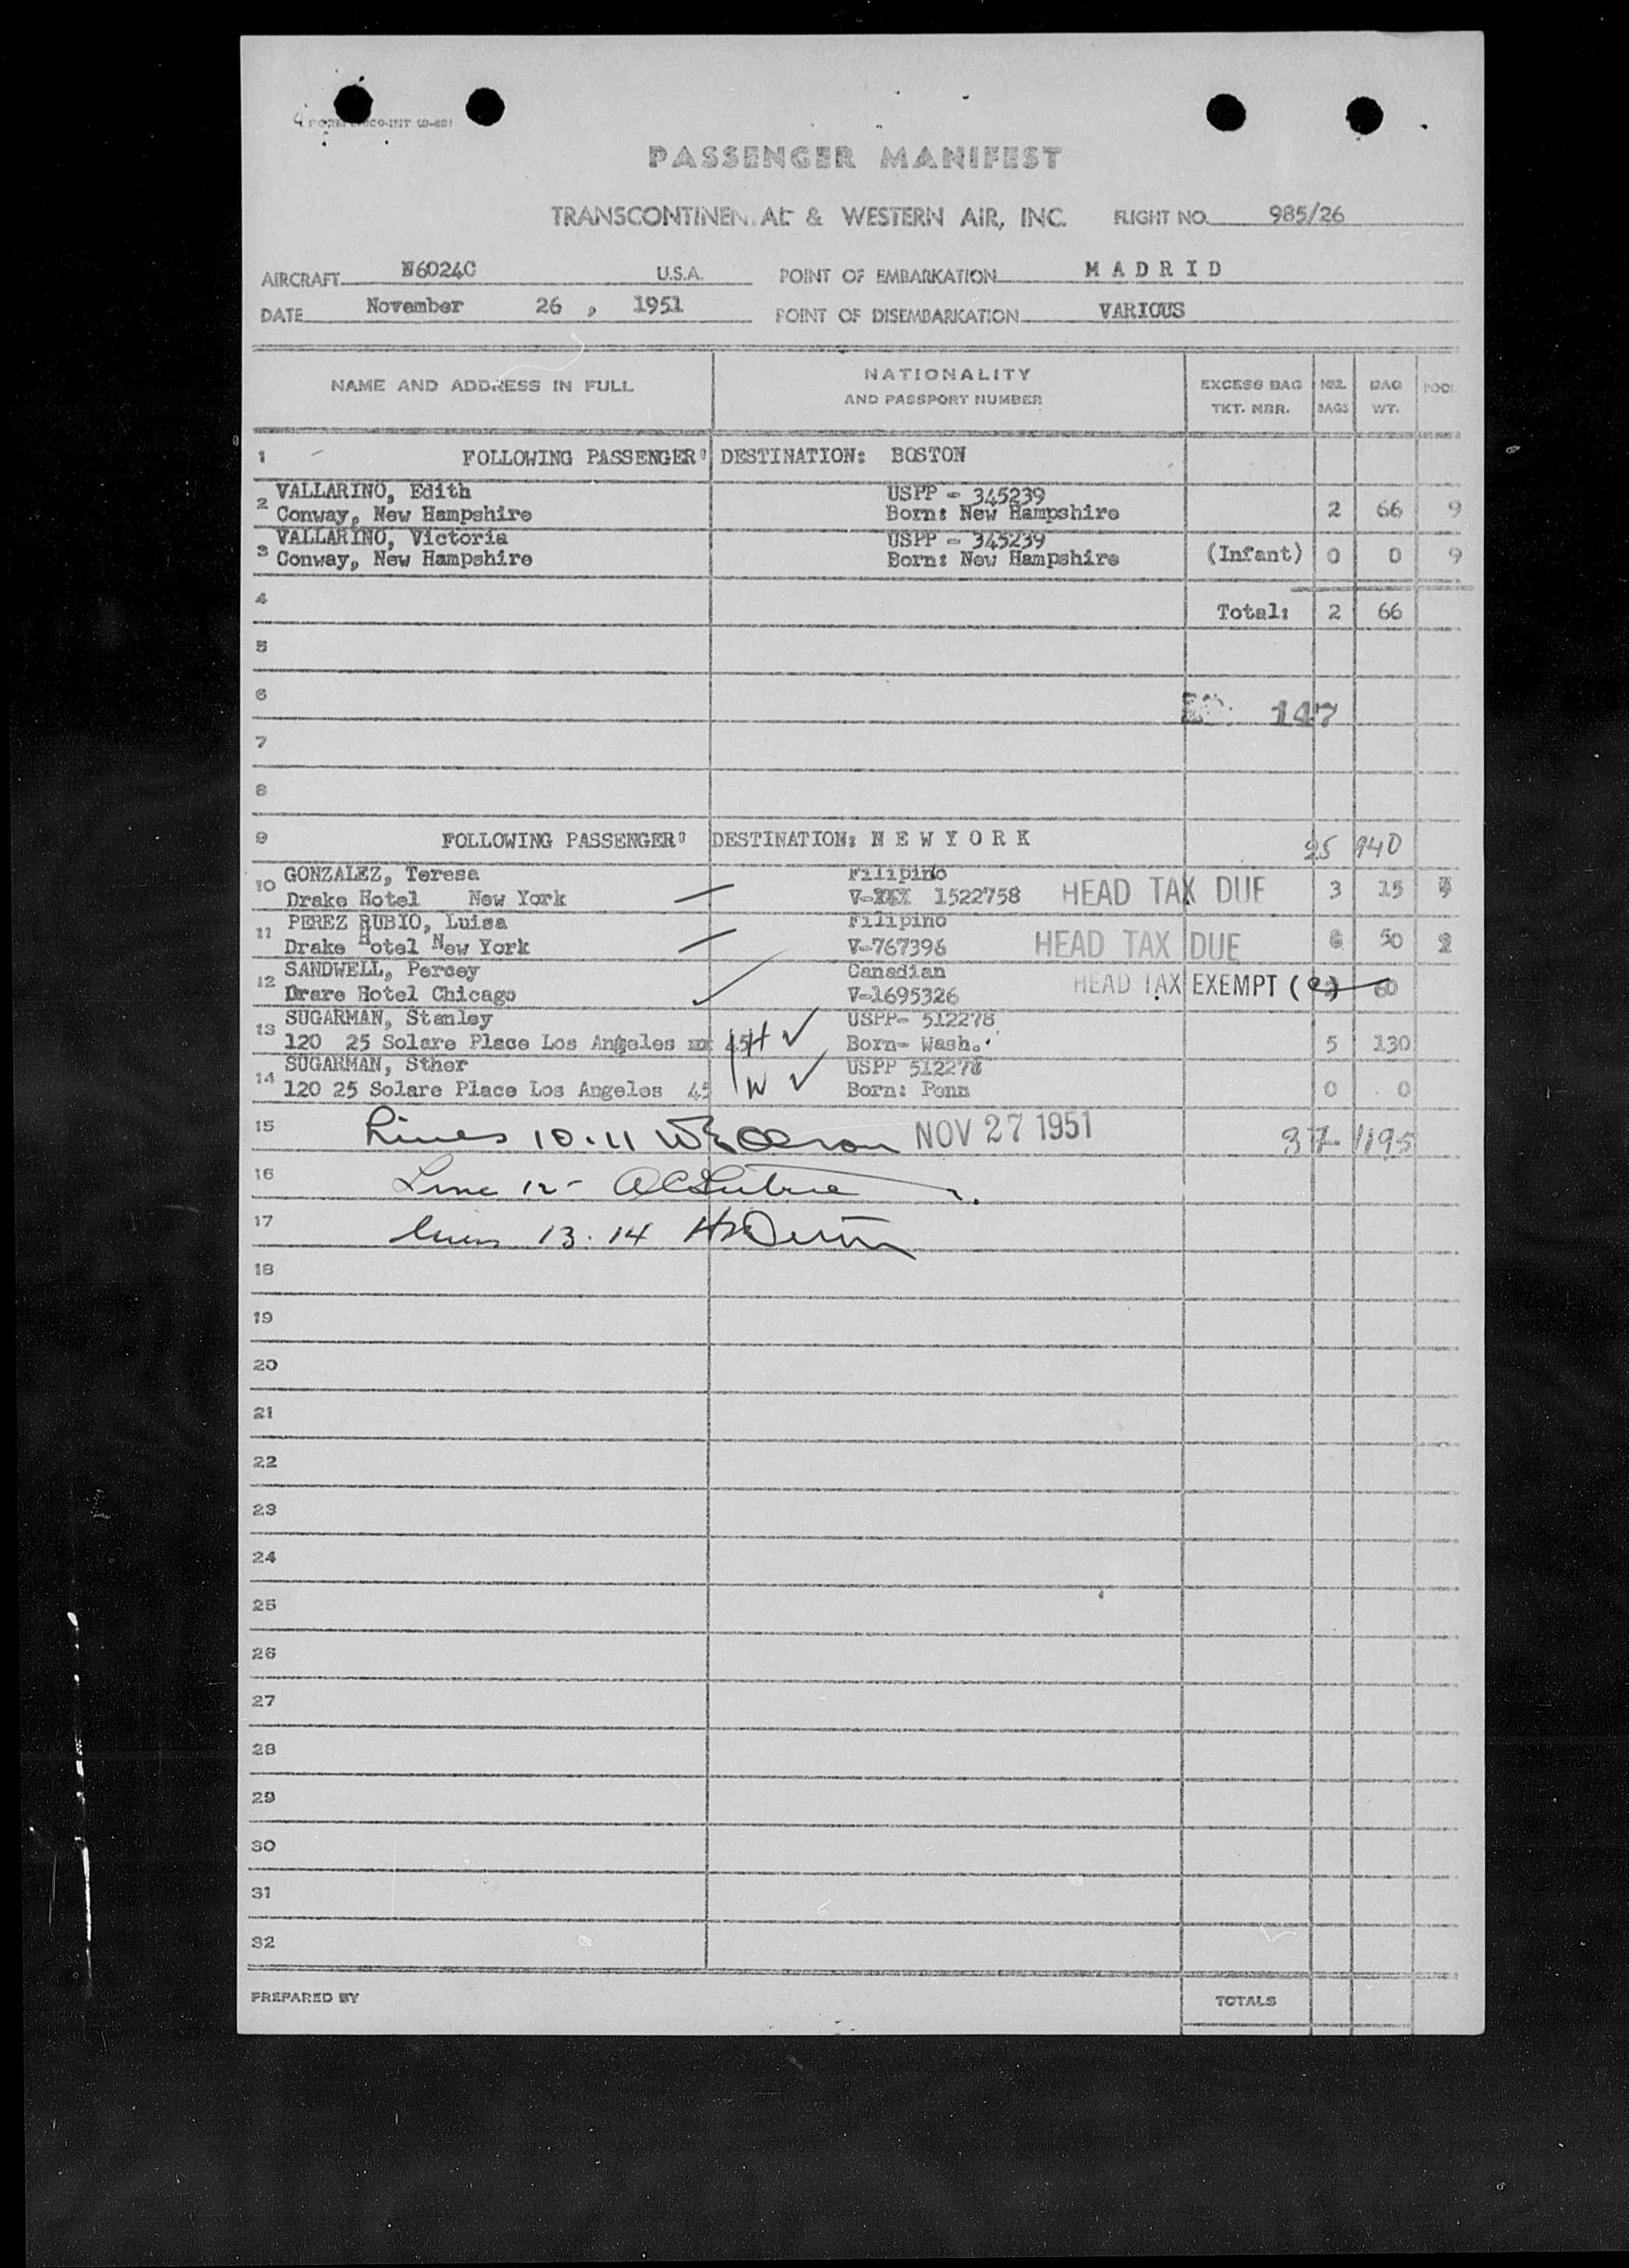 PASSENGER MANIFEST
TRANSCONTINENTAL & WESTERN AIR, INC. FLIGHT NO. 985/26
AIRCRAFT N6024C U.S.A. POINT OF EMBARKATION MADRID
DATE November 26, 1951 POINT OF DISEMBARKATION VARIOUS
NAME AND ADDRESS IN FULL NATIONALITY AND PASSPORT NUMBER EXCESS BAG TKT. NBR. NBR. BAGS BAG WT. POOL
1 FOLLOWING PASSENGER' DESTINATION: BOSTON
2 VALLARINO, Edith USPP - 345239
Conway, New Hampshire Born: New Hampshire 2 66 9
3 VALLARINO, Victoria USPP - 345239
Conway, New Hampshire Born: New Hampshire (Infant) 0 0 9
4 Total: 2 66
5
6 147
7
8
9 FOLLOWING PASSENGER' DESTINATION: NEW YORK 25 940
10 GONZALEZ, Teresa Filipino
Drake Hotel New York V-XXX 1522758 HEAD TAX DUE 3 15
11 PEREZ RUBIO, Luisa Filipino
Drake Hotel New York V-767396 HEAD TAX DUE 50 2
12 SANDWELL, Percey Canadian
Drare Hotel Chicago V-1695326 HEAD TAX EXEMPT (e) 60
13 SUGARMAN, Stanley USPP- 512278
120 25 Solare Place Los Angeles 45 H Born- Wash. 5 130
14 SUGARMAN, Sther USPP 512278
120 25 Solare Place Los Angeles 45 W Born: Penn 0 0
15 Lines 10-11 NOV 27 1951 37 1195
16 Line 12-
17 lines 13-14
18
19
20
21
22
23
24
25
26
27
28
29
30
31
32
PREPARED BY TOTALS